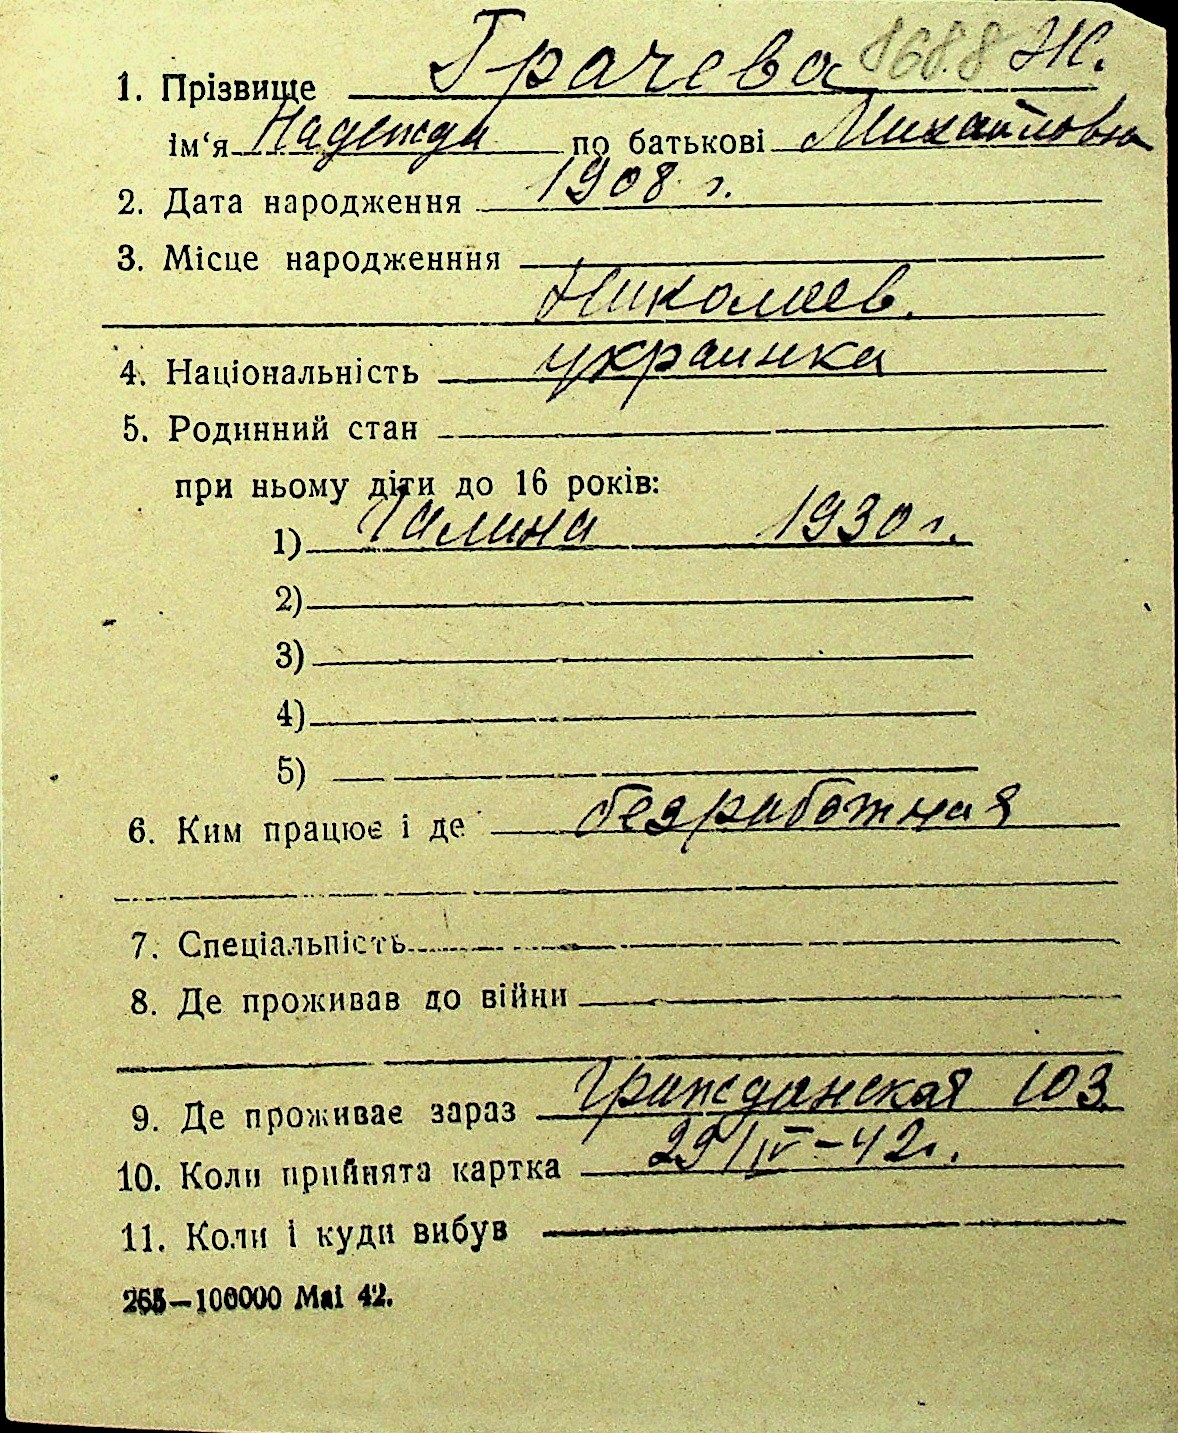 1. Прізвище Грачева 8688 Ж.
ім'я Надежда по батькові Михайловна
2. Дата народження 1908 г.
3. Місце народженння
Николаев.
4. Національність украинка
5. Родинний стан
при ньому діти до 16 років:
1) Галина 1930 г.
2)
3)
4)
5)
6. Ким працює і де безработная
7. Спеціальність
8. Де проживав до війни
9. Де проживає зараз Гражданская 103
10. Коли прийнята картка 29/IV-42 г.
11. Коли і куди вибув
265—100000 Mai 42.